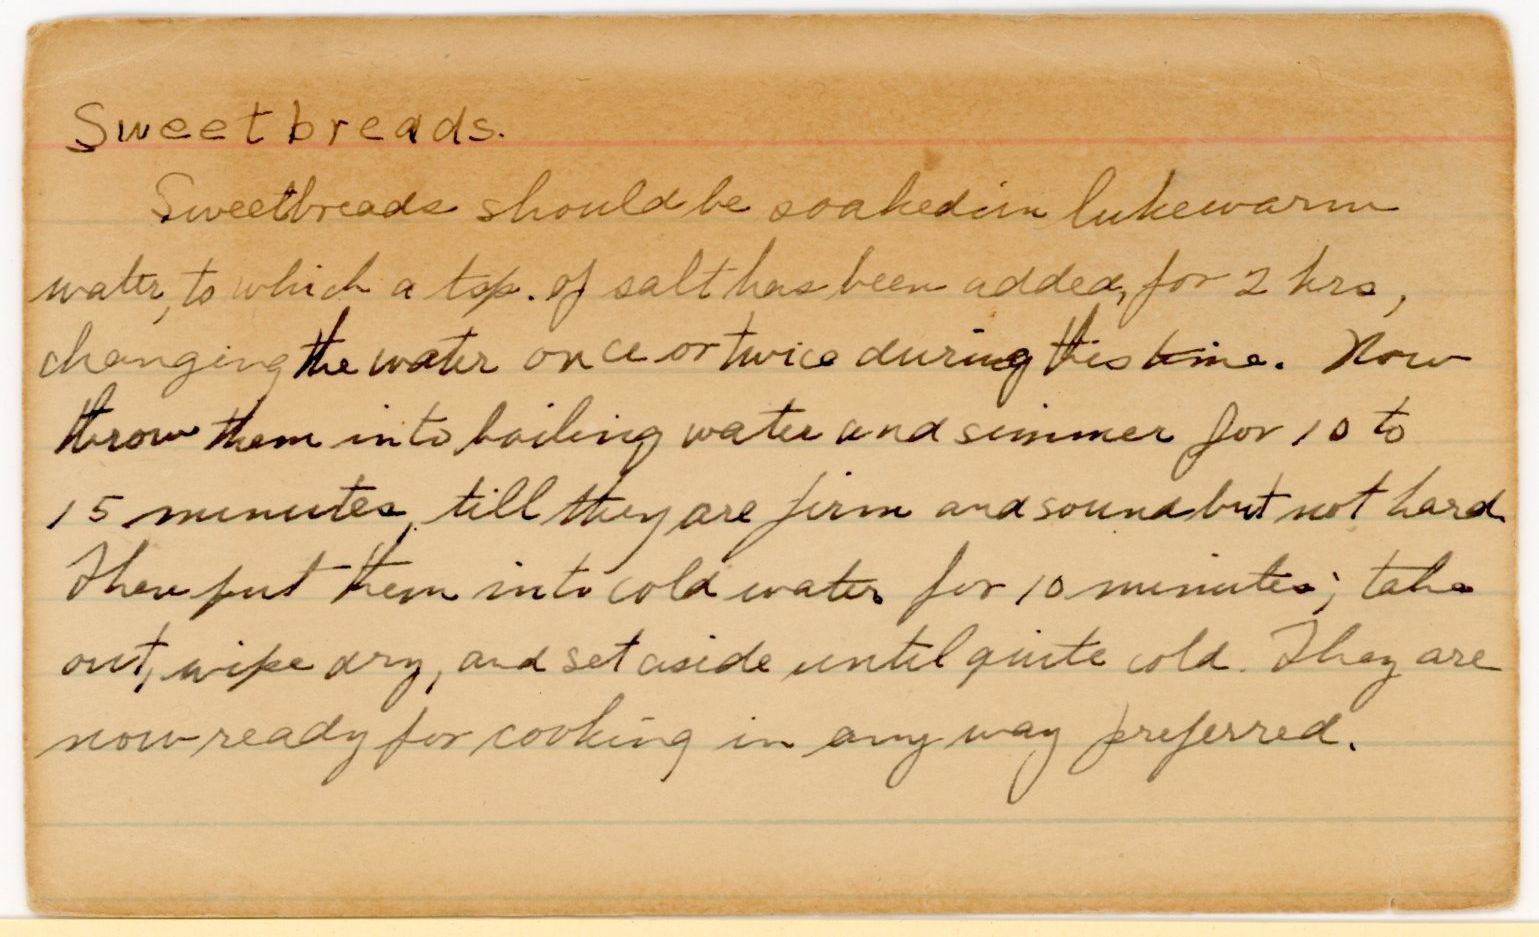 Sweetbreads.
Sweetbreads should be soaked in lukewarm
water, to which a tsp. of salt has been added, for 2 hrs,
changing the water once or twice during this time. Now
throw them into boiling water and simmer for 10 to
15 minutes, till they are firm and sound but not hard.
Then put them into cold water for 10 minutes; take
out, wipe dry, and set aside until quite cold. They are
now ready for cooking in any way preferred.